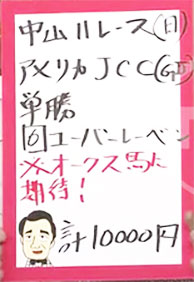 中山11レース(日)
アメリカJCC(GⅡ)
単勝
6 ユーバーレーベン
※オークス馬に
期待!
計10000円